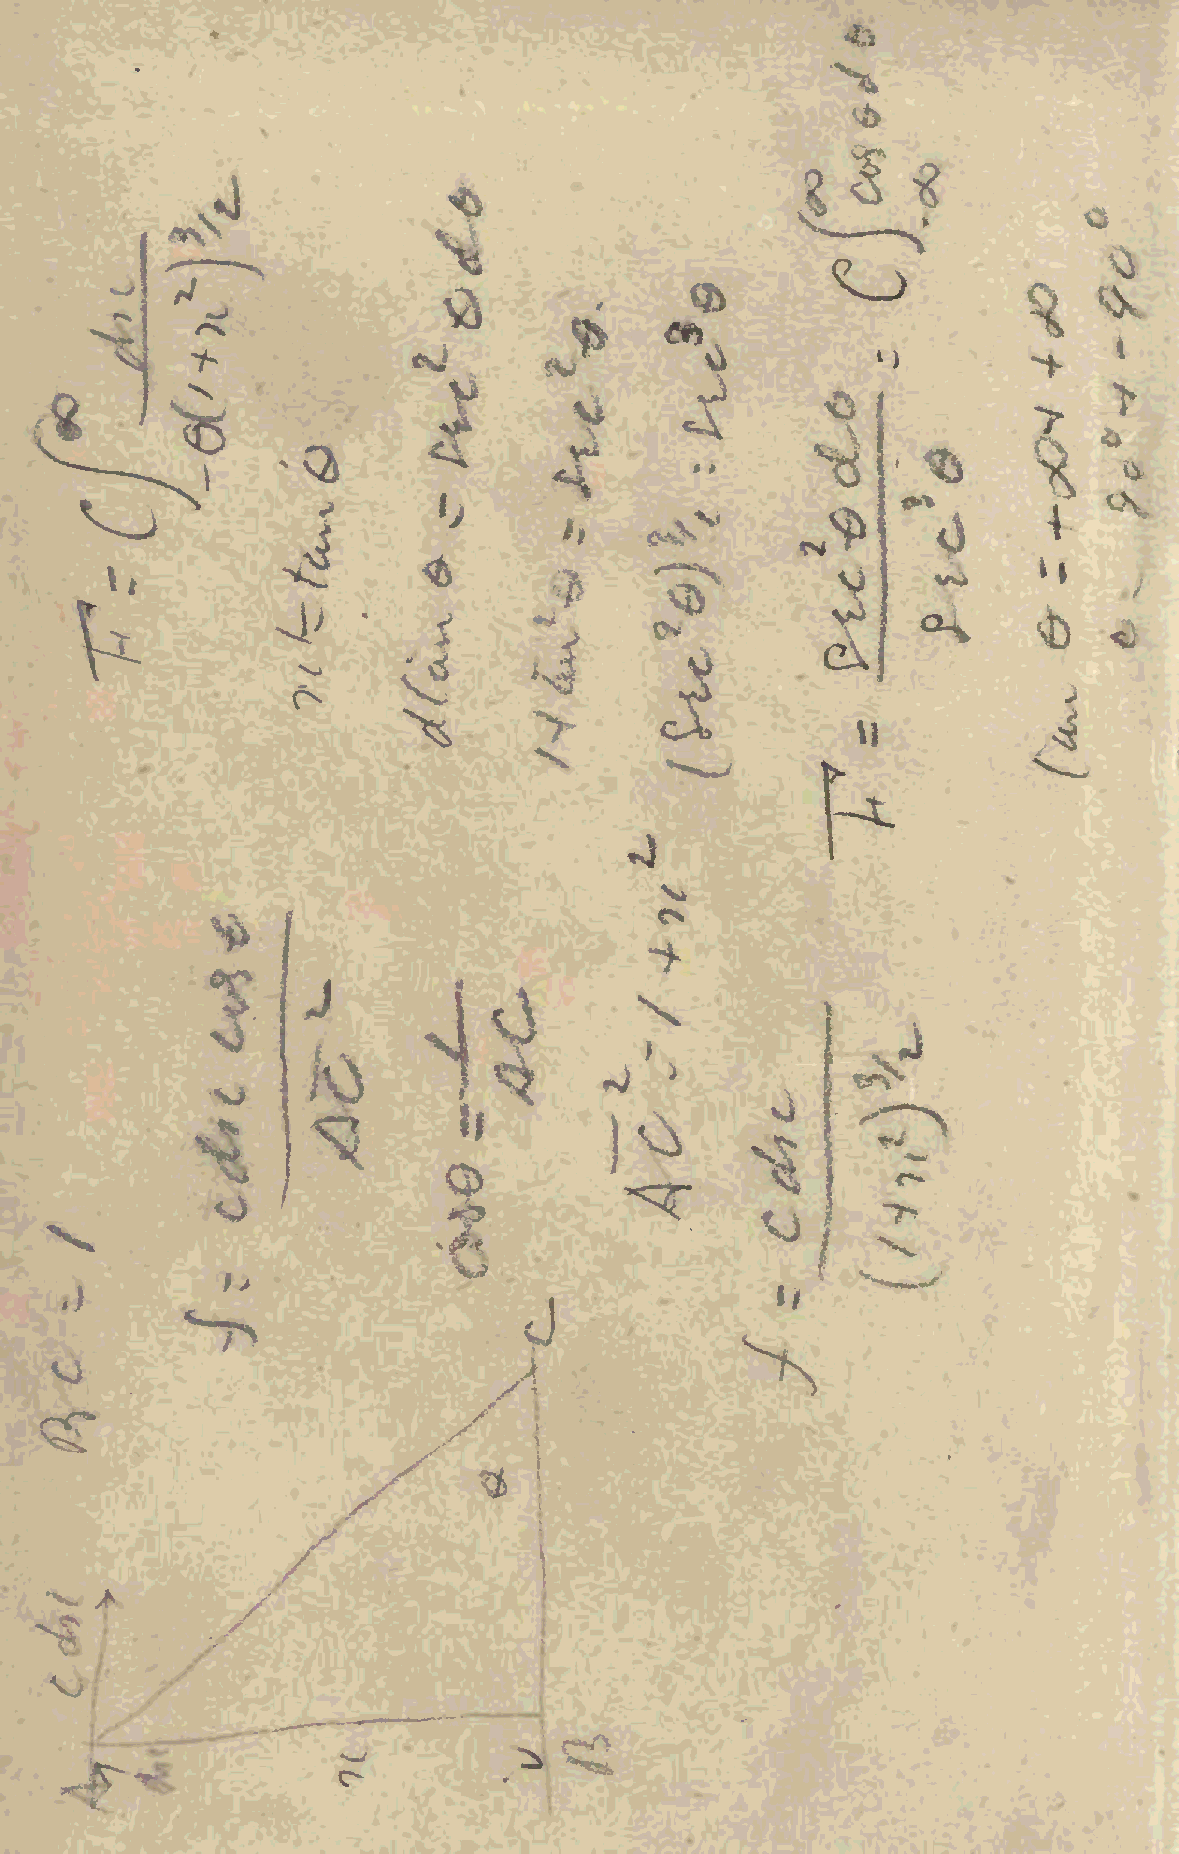 A
C dx
dx
x
B
C
θ
BC = 1
f = c dx cos θ / AC²
cos θ = 1 / AC
AC² = 1 + x²
f = c dx / (1 + x²)^3/2
F = C ∫ ∞ -∞ dx / (1 + x²)^3/2
x = tan θ
d tan θ = sec² θ dθ
1 + tan² θ = sec² θ.
(sec² θ)^3/2 = sec³ θ
F = sec² θ dθ / sec³ θ = C ∫ ∞ -∞ cos θ dθ
tan θ = + ∞ + ∞
90° + - 90°